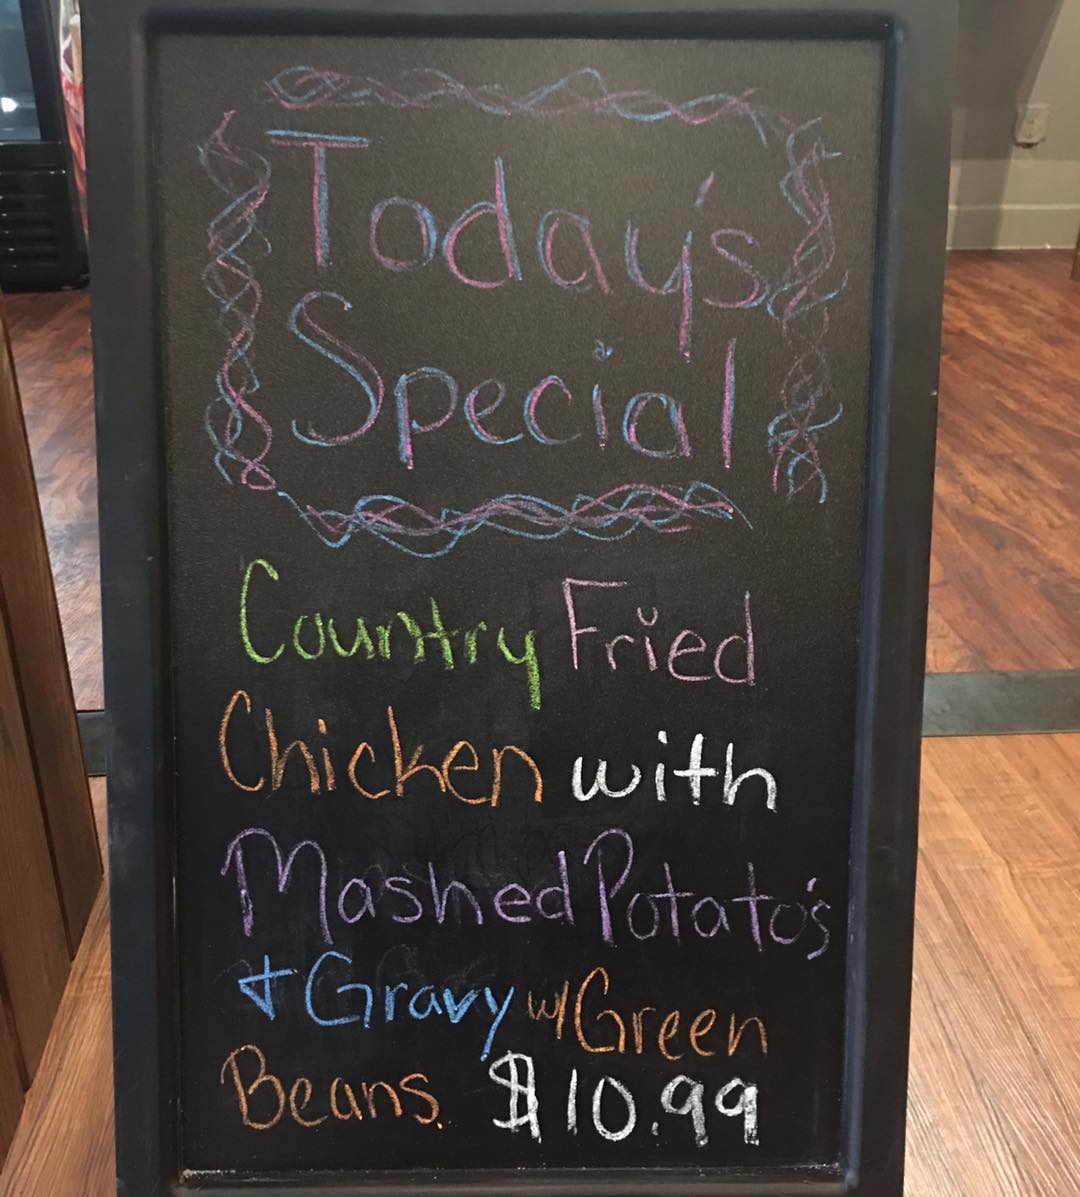 Today's
Special
Country Fried
Chicken with
Mashed Potato's
+ Gravy w/ Green
Beans. $10.99